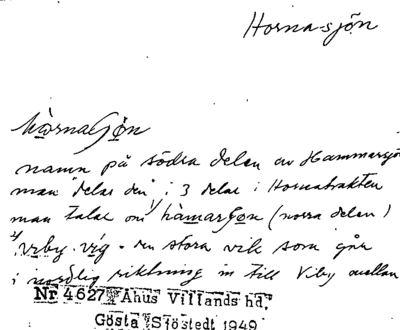 Hornasjön
hò̱rnaʃø̱n
namn på södra delen av Hammarsjö
man "delar den" i 3 delar i Hornatrakten
man talar om hàmarʃøn (norra delen)
vi̱by. vi̱g - den stora vik som går
i nordlig riktning in till Viby mellan
Nr 4627 Åhus Villands hd.
Gösta Sjöstedt 1949